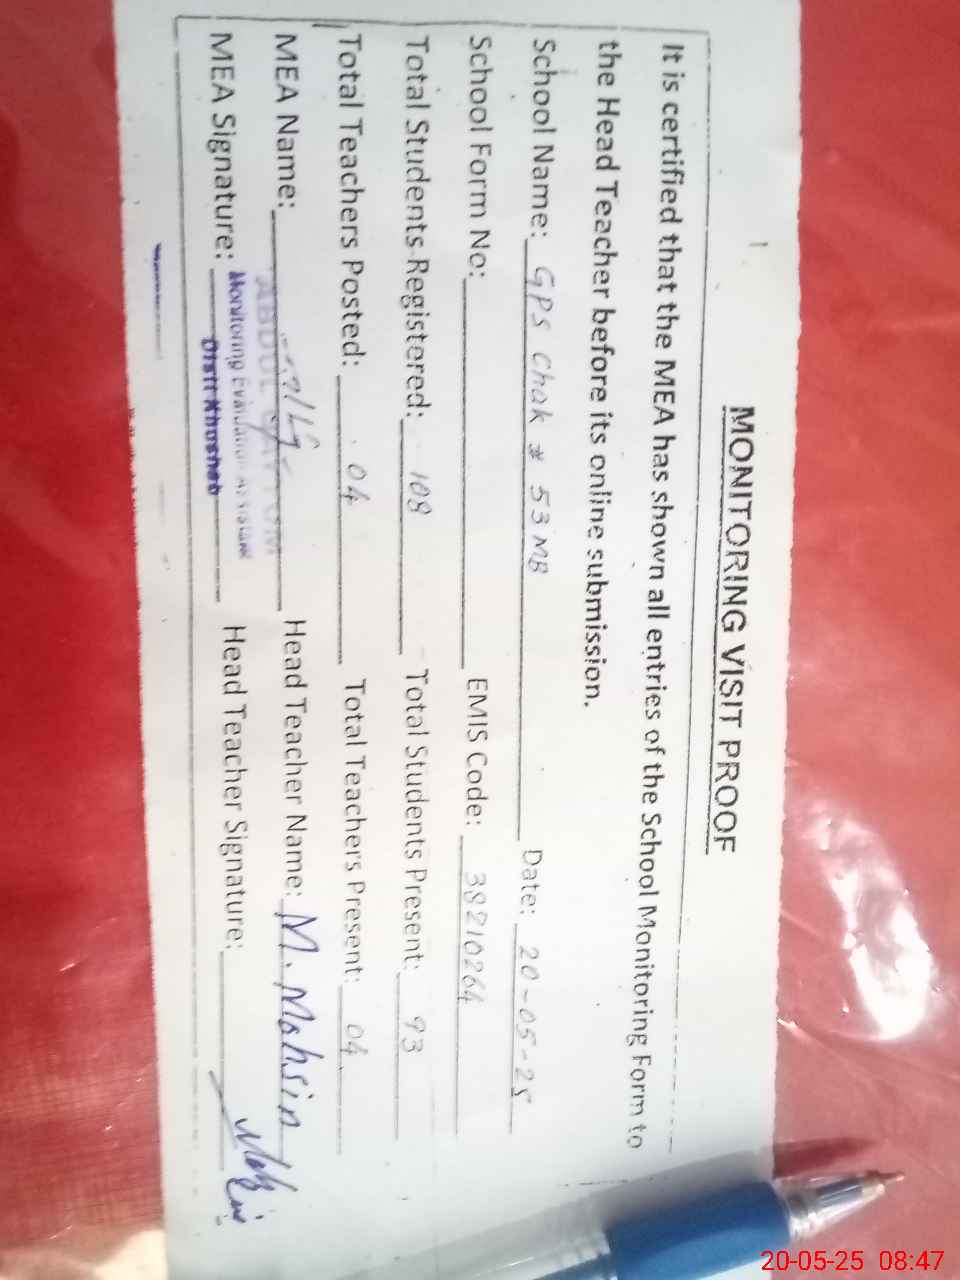 MONITORING VISIT PROOF
It is certified that the MEA has shown all entries of the School Monitoring Form to
the Head Teacher before its online submission.
School Name: GPS Chak # 53 MB Date: 20-05-25
School Form No: EMIS Code: 38210264
Total Students Registered: 108 Total Students Present: 93
Total Teachers Posted: 04 Total Teachers Present: 04
MEA Name: ABDUL Head Teacher Name: M. Mohsin
MEA Signature: Head Teacher Signature:
Monitoring Evaluation Assistant
Distt Khushab
20-05-25 08:47